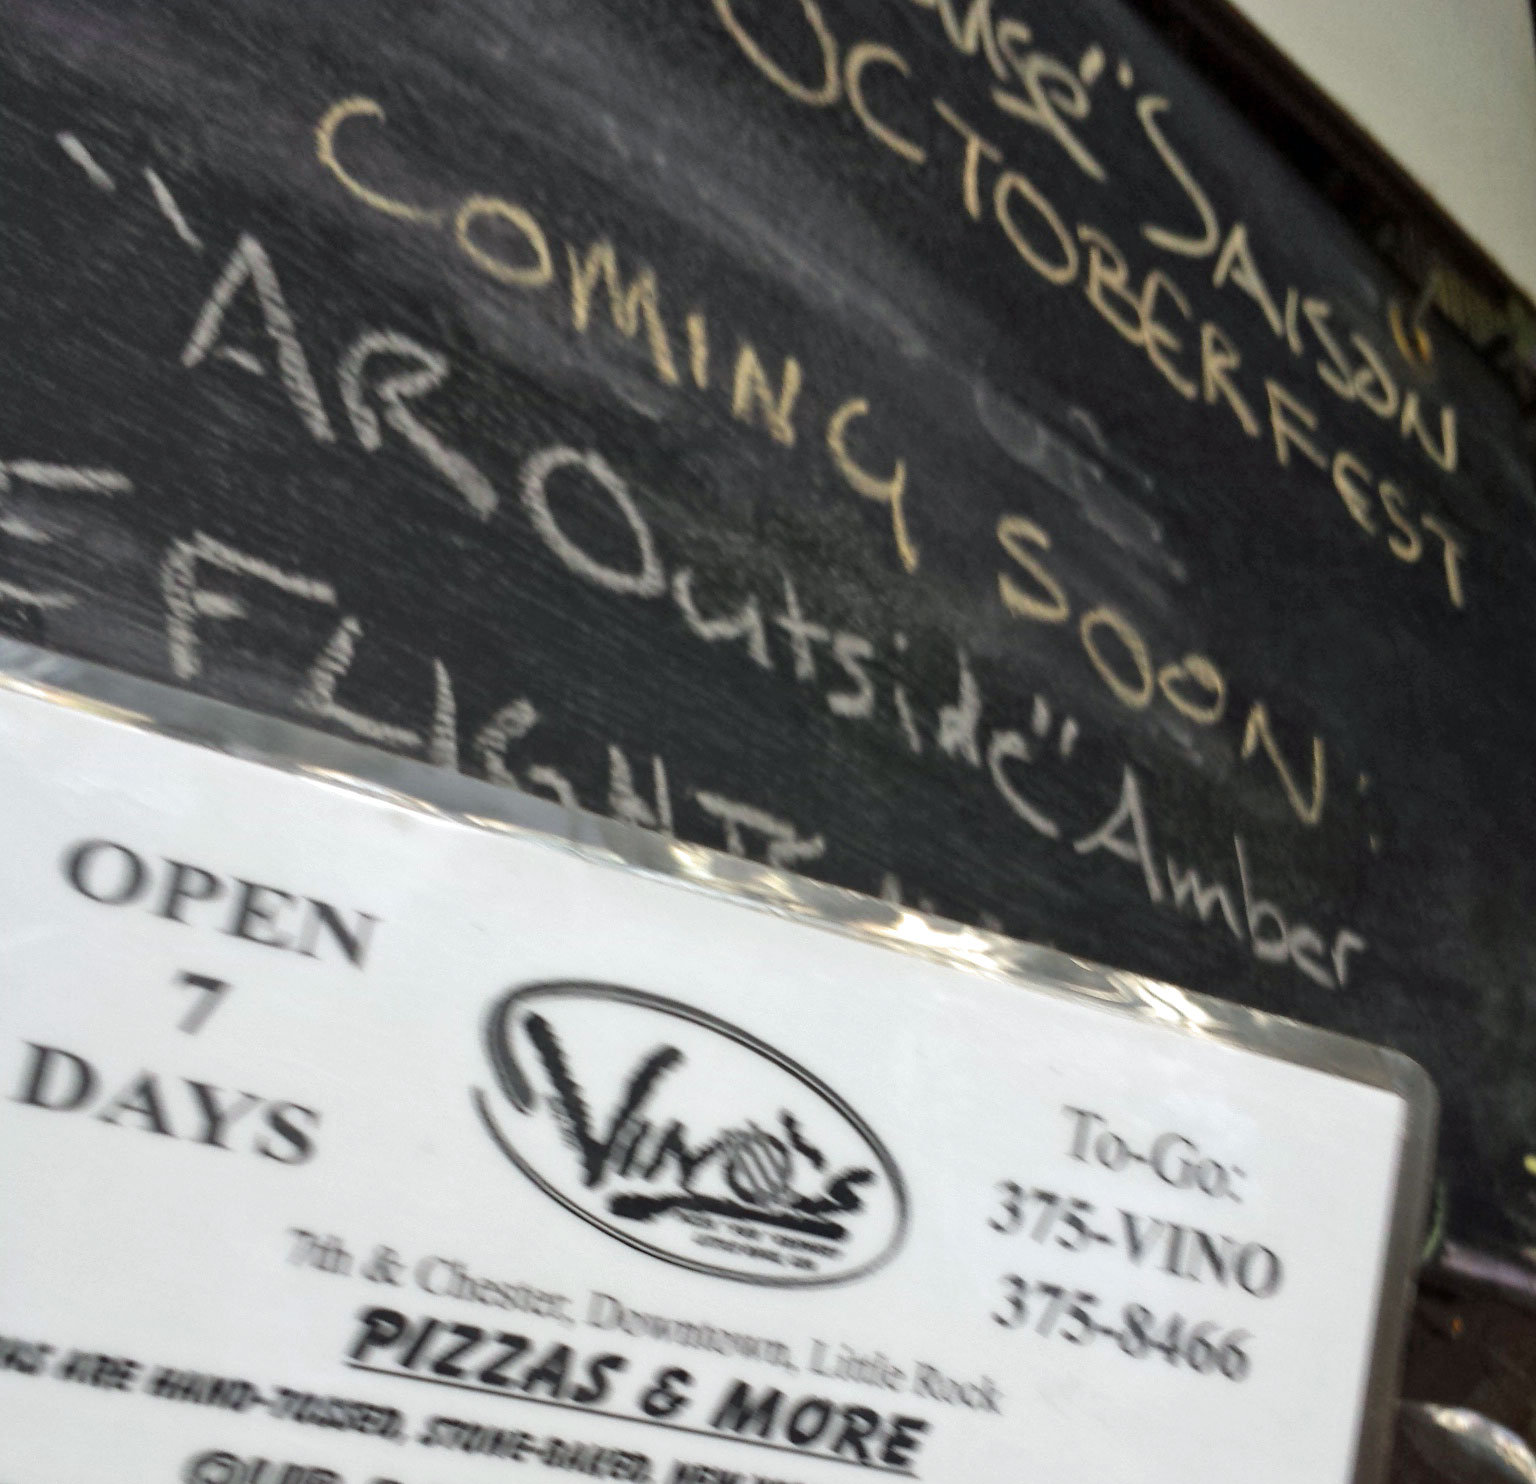 SAISON
OCTOBERFEST
COMING SOON:
"AR Outside" Amber
FLIGHT
OPEN
7
DAYS
VINO'S
To-Go:
375-VINO
375-8466
7th & Chester, Downtown, Little Rock
PIZZAS & MORE
ARE HAND-TOSSED, STONE-BAKED, NEW